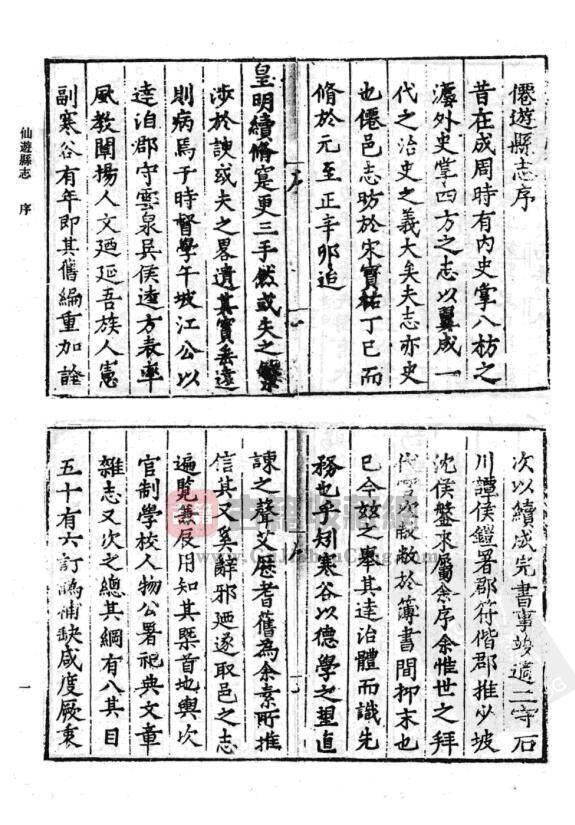 僊遊縣志序
昔在成周時有內史掌八枋之
濿外史掌四方之志以翼成一
代之治史之義大矣夫志亦史
也僊邑志昉於宋寳祐丁巳而
脩於元至正辛卯迨
皇明續脩寔更三手然或失之繁
涉於諛或失之畧遺其實垂遠
則病焉于時督學午坡江公以
達治郡守雲泉吳侯逵方表率
風教闡揚人文廼延吾族人憲
副寒谷有年即其舊編重加詮
次以續成完書事竣適二守石
川譚侯鎧署郡符偕郡推少坡
沈侯盤來屬余序余惟世之拜
敝於簿書間抑末也
已今玆之舉其達治體而識先
務也乎矧寒谷以德學之望直
諫之聲艾歷耆舊為余素所推
信其又奚辭邪廼遂取邑之志
遍覽兼辰用知其槩首地輿次
官制學校人物公署祀典文章
雜志又次之總其綱有八其目
五十有六訂譌補缺咸度厥衷
仙遊縣志 序
一